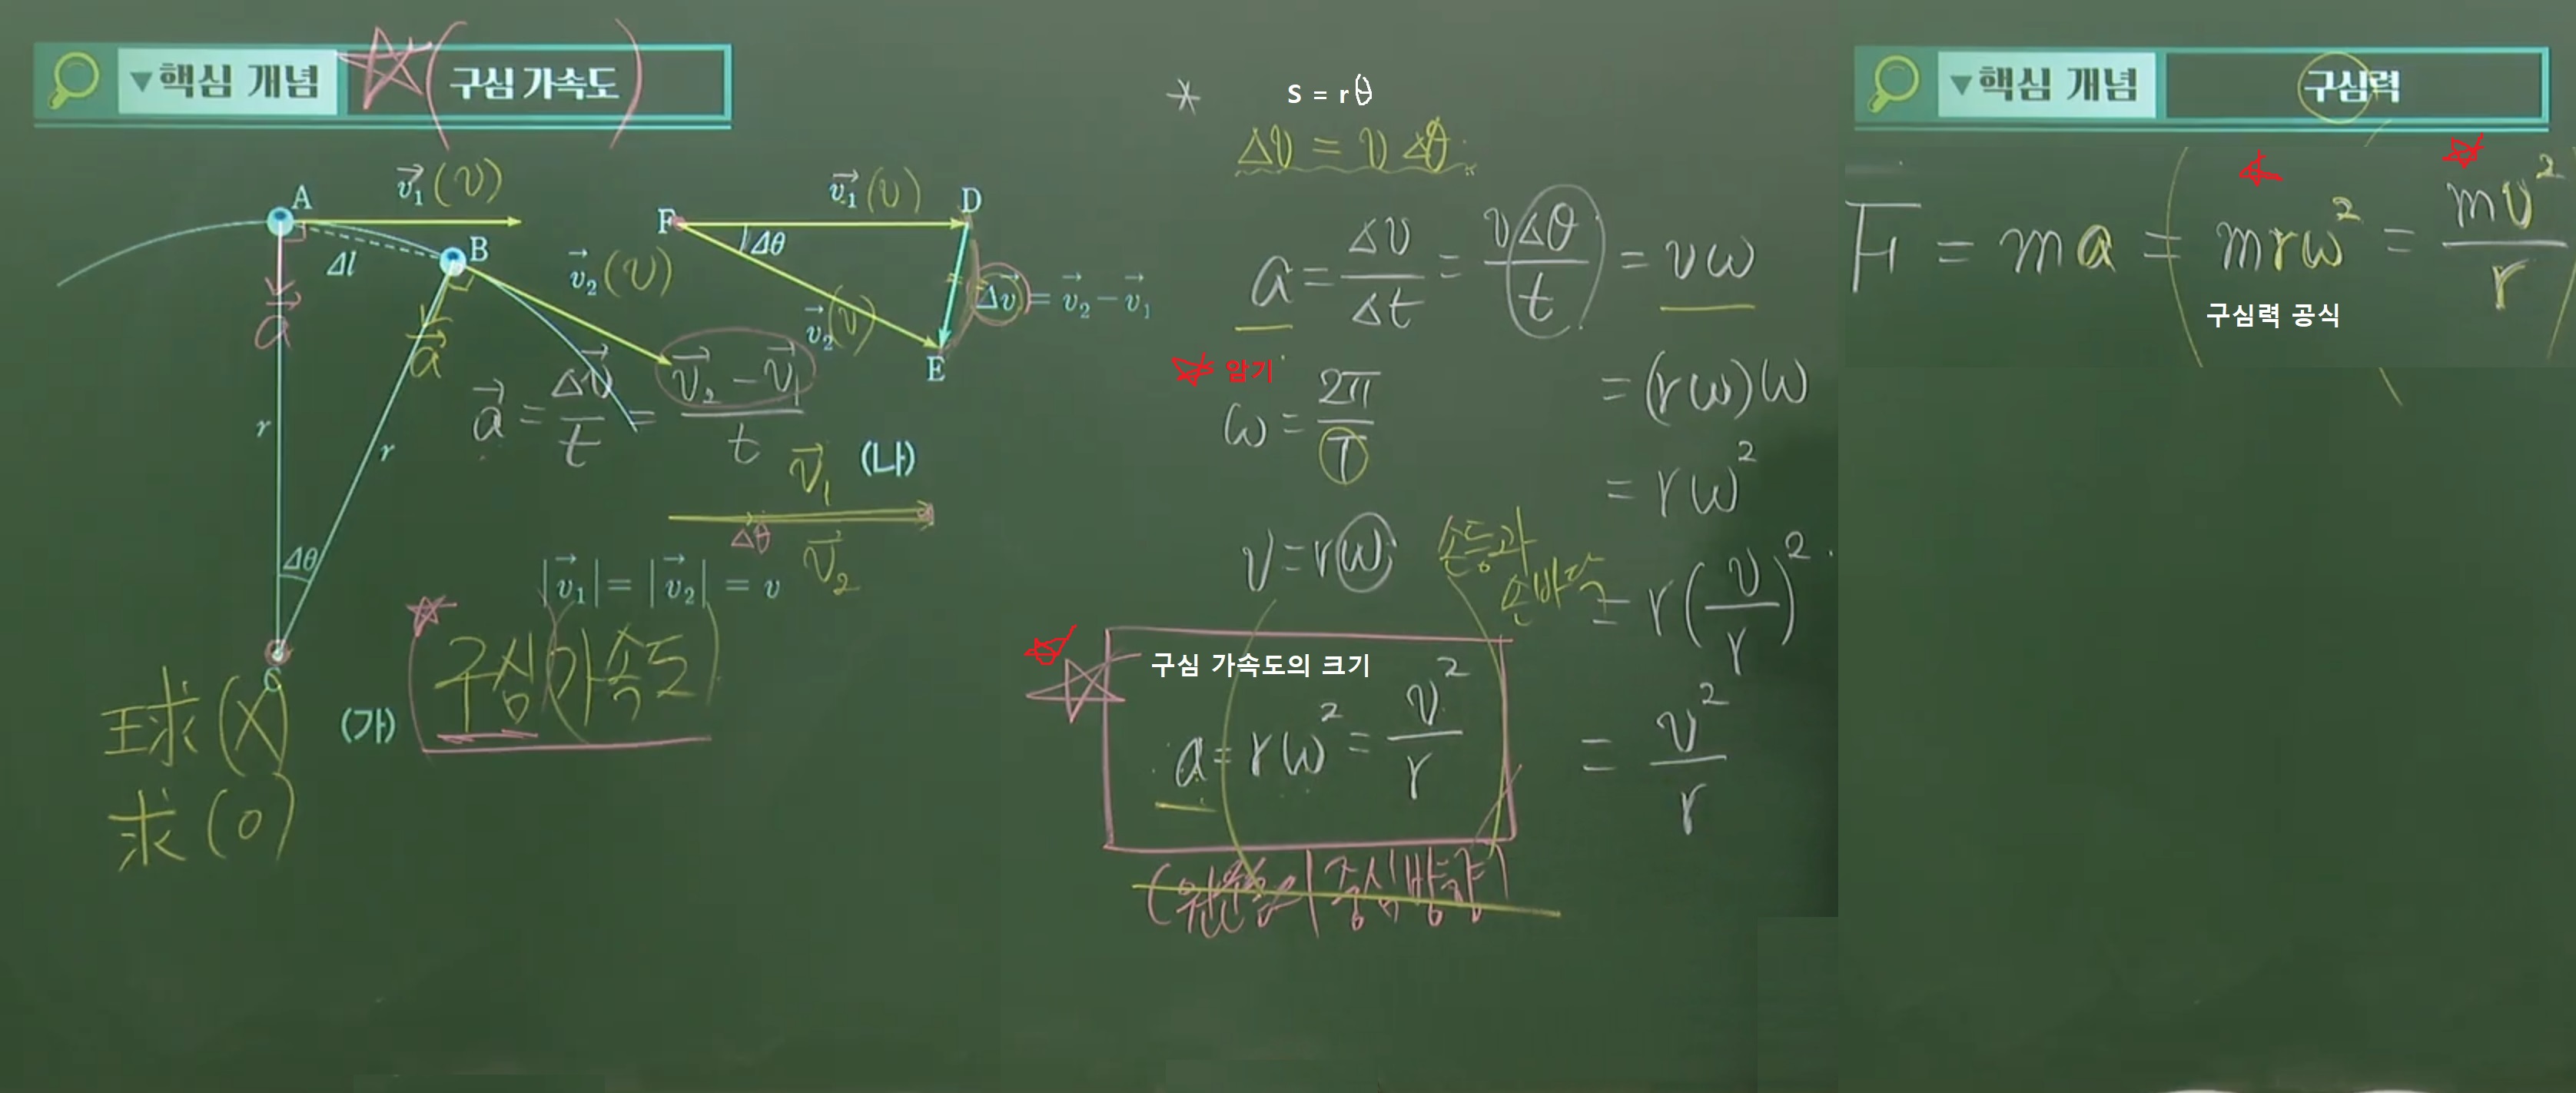 ▼핵심 개념 ☆(구심 가속도)
A
v₁ (v)
B
Δl
v₂ (v)
a
a
r
r
Δθ
C
(가)
F
v₁ (v)
D
Δθ
v₂ (v)
E
Δv = v₂ − v₁
a = Δv/t = (v₂ − v₁)/t
v₁
(나)
Δθ
v₂
|v₁| = |v₂| = v
☆
(구심(가속도)
球 (X)
求 (O)
* S = rθ
Δv = v Δθ
a = Δv/Δt = vΔθ/t = vω
= (rω)ω
= rω²
= r(v/r)²
= v²/r
☆ 암기
ω = 2π/T
v = rω
손등과
손바닥
☆ 구심 가속도의 크기
a = rω² = v²/r
(원운동의 중심방향)
▼핵심 개념 구심력
F = ma = (mrω² = mv²/r)
구심력 공식